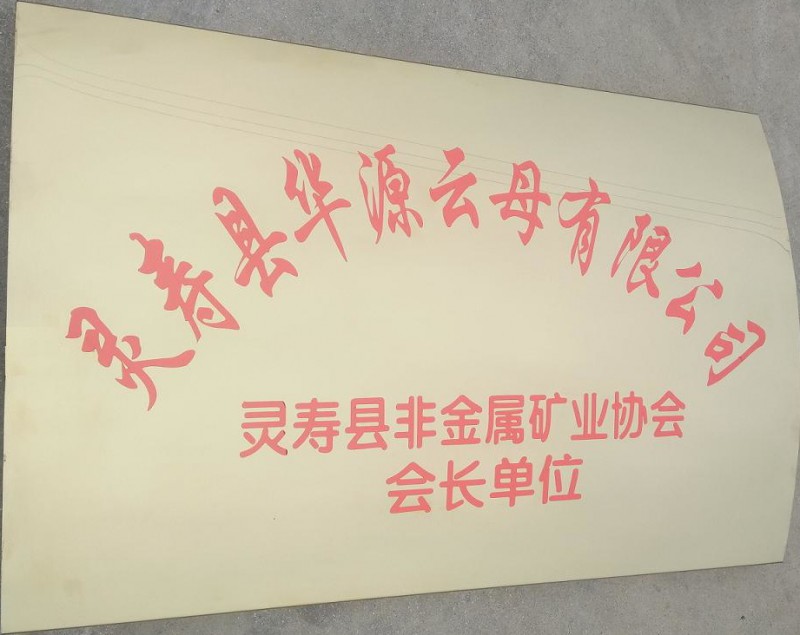 灵寿县华源云母有限公司
灵寿县非金属矿业协会
会长单位